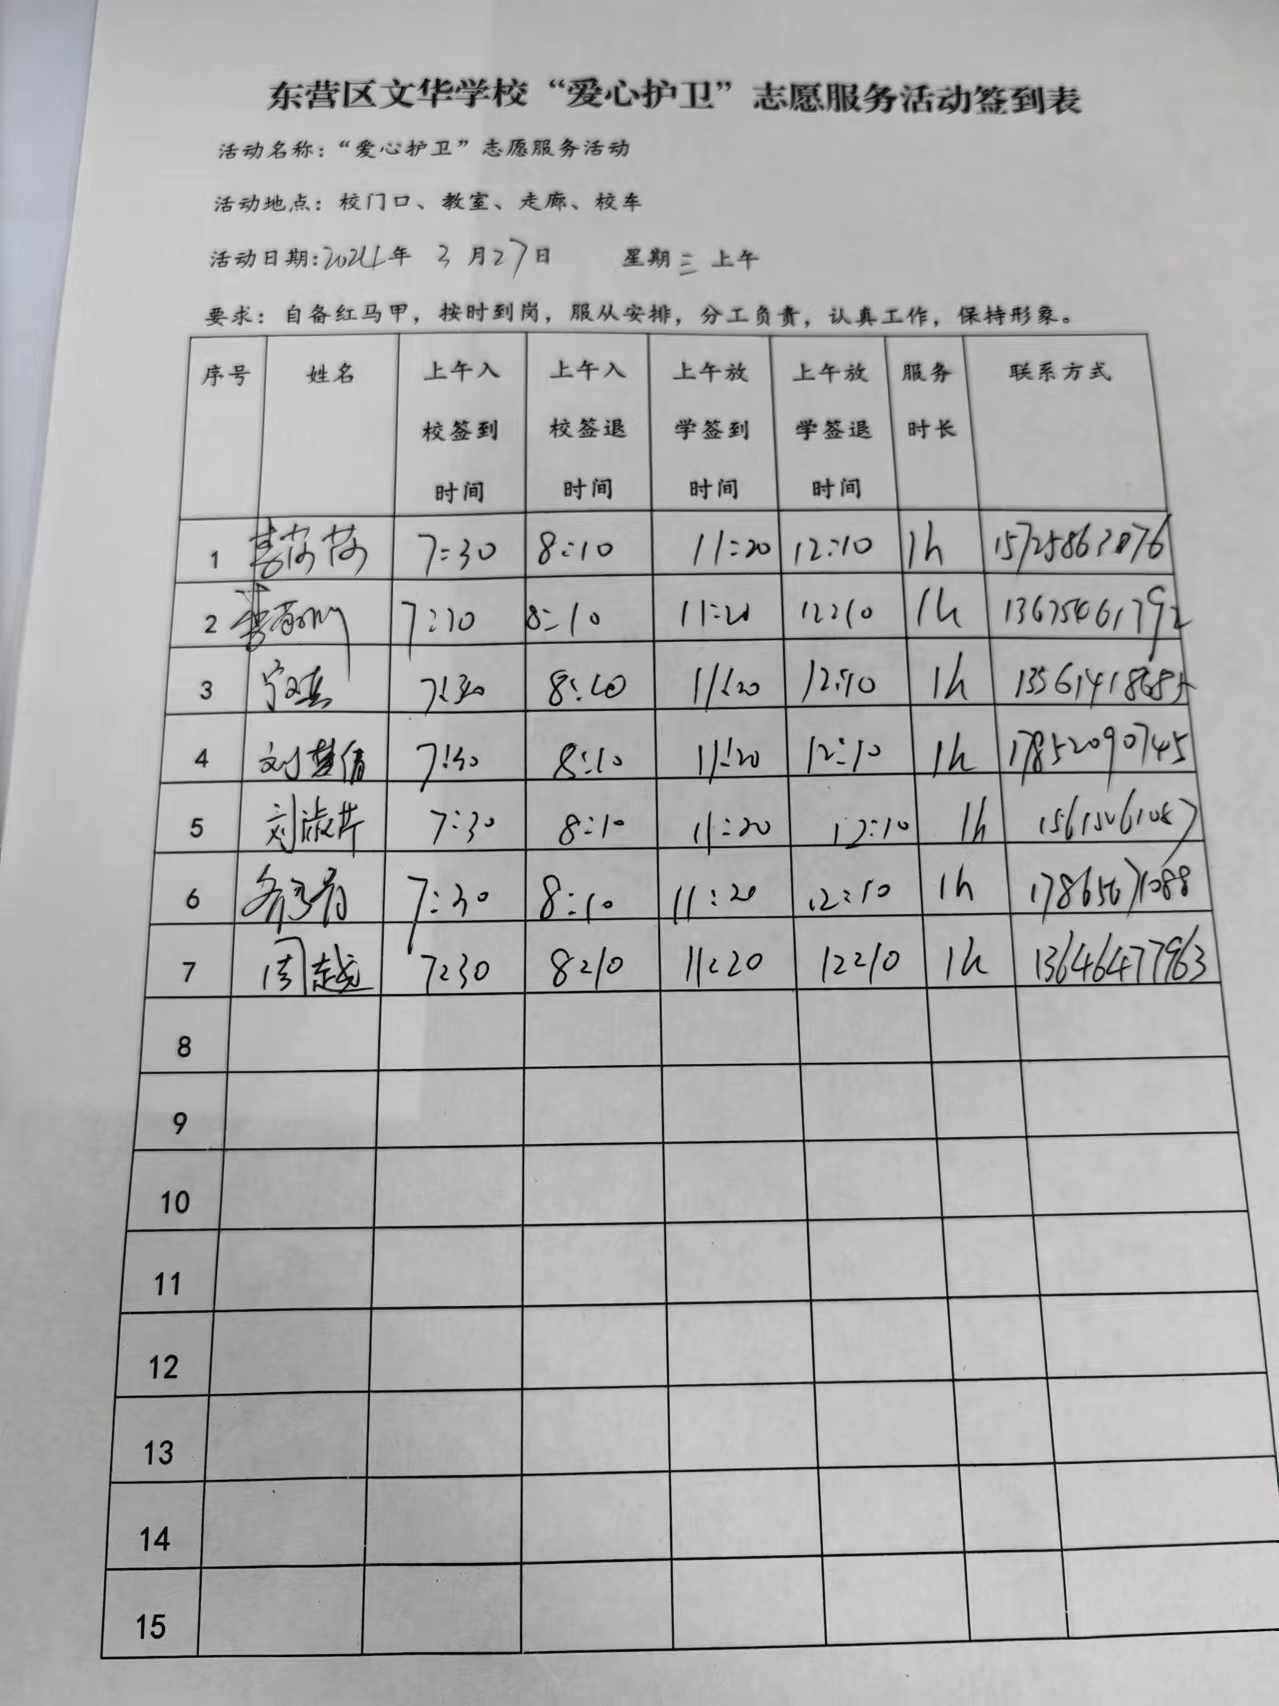 东营区文华学校“爱心护卫”志愿服务活动签到表
活动名称：“爱心护卫”志愿服务活动
活动地点：校门口、教室、走廊、校车
活动日期:2024年 3月27日 星期三 上午
要求：自备红马甲，按时到岗，服从安排，分工负责，认真工作，保持形象。
序号 姓名 上午入校签到时间 上午入校签退时间 上午放学签到时间 上午放学签退时间 服务时长 联系方式
1 莎莎 7:30 8:10 11:20 12:10 1h
2 7:30 8:10 11:20 12:10 1h
3 7:30 8:10 11:20 12:10 1h
4 刘梦倩 7:30 8:10 11:20 12:10 1h 17852090745
5 刘淑芹 7:30 8:10 11:20 12:10 1h
6 7:30 8:10 11:20 12:10 1h 17865671088
7 周越 7:30 8:10 11:20 12:10 1h 13646477963
8
9
10
11
12
13
14
15